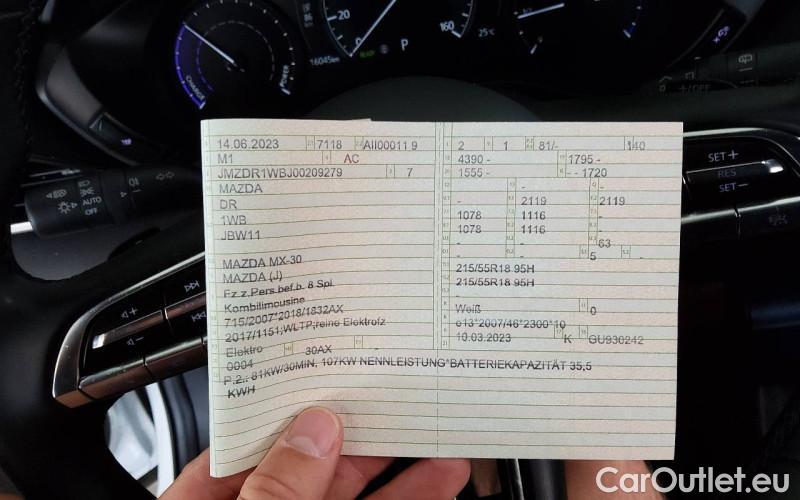 20
160
CHARGE
POWER
16045km
READY
P
25°C
160
AUTO
OFF
OFF
SET+
RES
SET−
14.06.2023 7118 AII00011 9
M1 AC
JMZDR1WBJ00209279 7
MAZDA
DR
1WB
JBW11
MAZDA MX-30
MAZDA (J)
Fz.z.Pers.bef.b. 8 Spl.
Kombilimousine
715/2007*2018/1832AX
2017/1151;WLTP;reine Elektrofz
Elektro -
0004 30AX
2 1 81/- 140
4390 - 1795 -
1555 - - - 1720
- - -
- 2119 2119
1078 1116 -
1078 1116 -
- - 63
- 5 -
215/55R18 95H
215/55R18 95H
-
Weiß 0
e13*2007/46*2300*10
10.03.2023 K GU930242
P.2.: 81KW/30MIN, 107KW NENNLEISTUNG*BATTERIEKAPAZITÄT 35,5
KWH
CarOutlet.eu